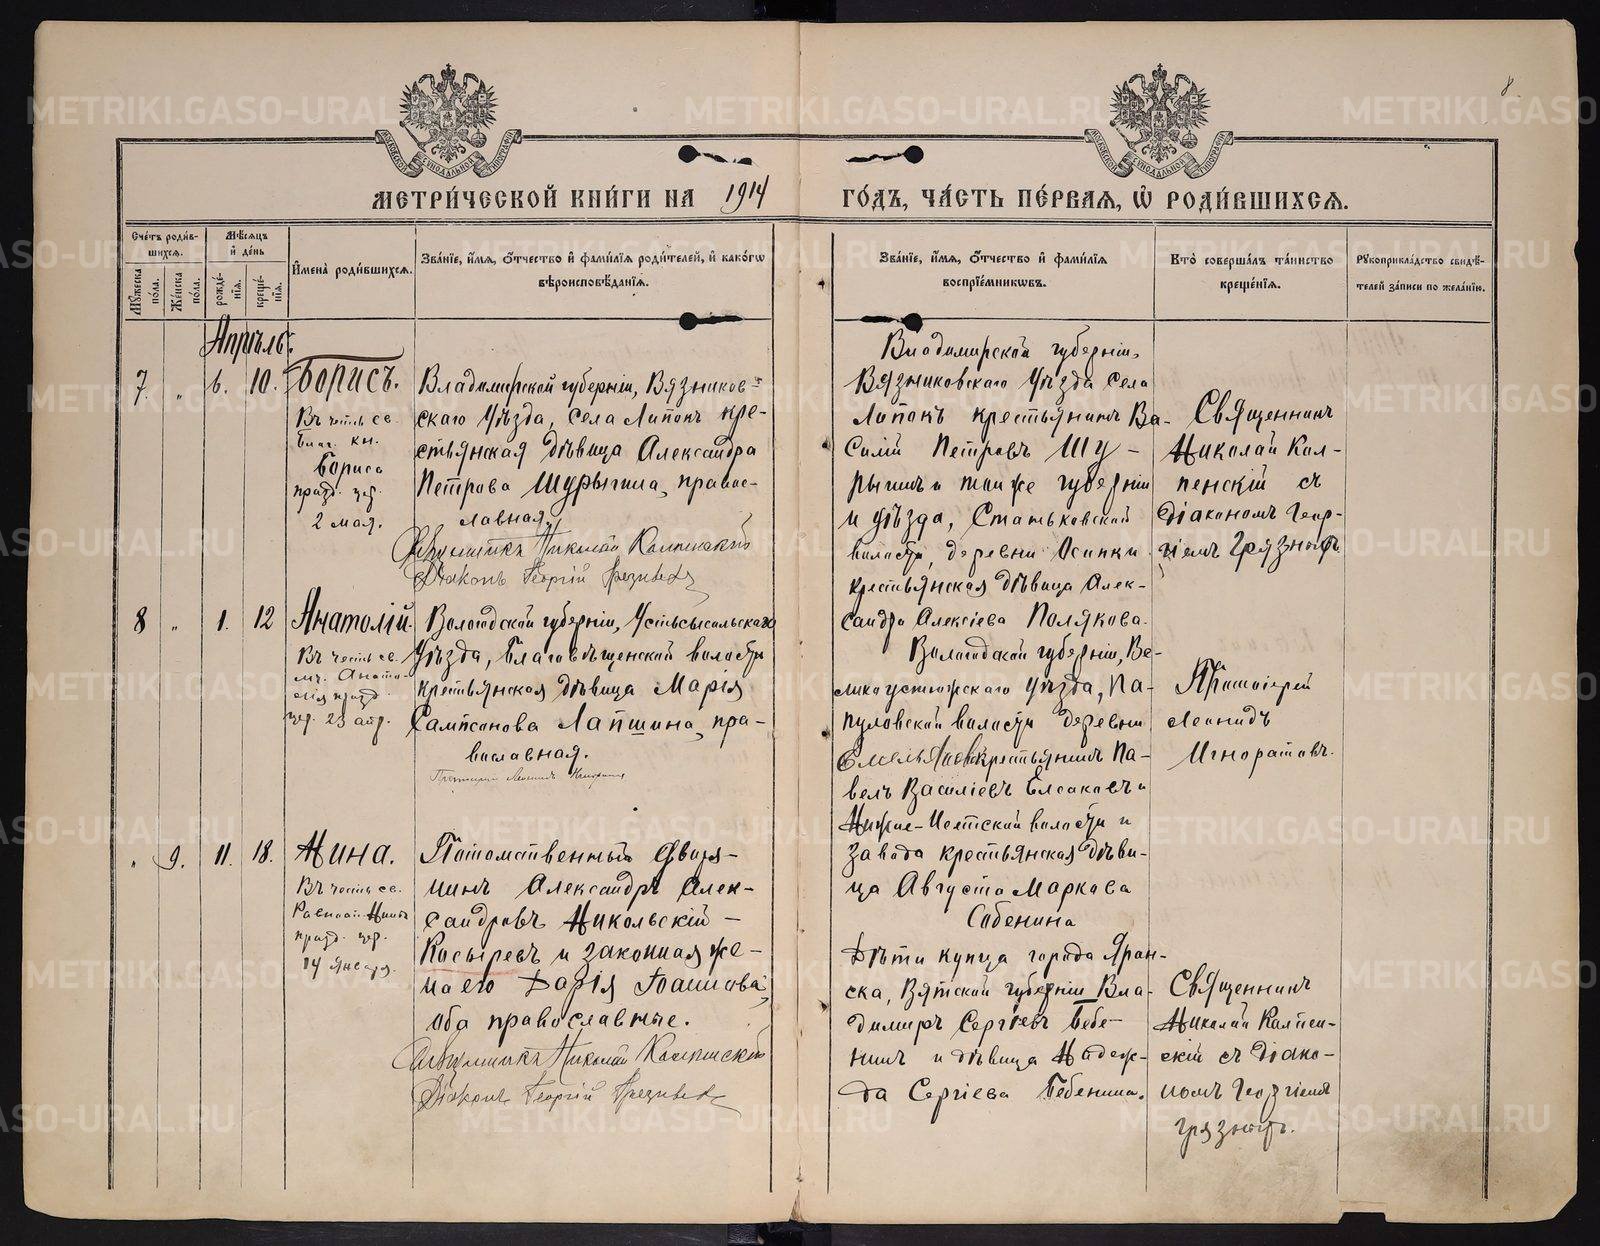 8
МЕТРИ́ЧЕСКОЙ КНИ́ГИ НА 1914 ГО́ДЪ, ЧА́СТЬ ПЕ́РВАЯ, Ѿ РОДИ́ВШИХСЯ.
Сче́тъ роди́вшихся.
Му́жеска по́ла.
Же́нска по́ла.
Мѣ́сяцъ и де́нь
рожде́нія.
креще́нія.
Имена́ роди́вшихся.
Зва́ніе, и́мя, о́тчество и фами́лія роди́телей, и како́гѡ вѣроисповѣ́данія.
Зва́ніе, и́мя, о́тчество и фами́лія воспріе́мниковъ.
Кто̀ соверша́лъ та́инство креще́нія.
Рукоприкла́дство свидѣ́телей за́писи по жела́нію.
Апрѣль.
7. " 6. 10. Борисъ.
Въ честь св.
Благ. кн.
Бориса
празд. цер.
2 мая.
Владимирской губерніи, Вязников-
скаго Уѣзда, села Липокъ кре-
стьянская дѣвица Александра
Петрова Шурыгина, правос-
лавная.
Священникъ Николай Калпенскій
Діаконъ Георгій Грязновъ
Владимирской губерніи,
Вязниковскаго Уѣзда Села
Липокъ крестьянинъ Ва-
силій Петровъ Шу-
рыгинъ и той же губерніи
и уѣзда, Станьковской
волости, деревни Осинки
крестьянская дѣвица Алек-
сандра Алексіева Полякова.
Священникъ
Николай Кал-
пенскій съ
діакономъ Геор-
гіемъ Грязновъ
8 " 1. 12 Анатолій.
Въ честь св.
мч. Анато-
лія празд.
цер. 23 апр.
Вологодской губерніи, Устьсысольскаго
Уѣзда, Благовѣщенской волости
крестьянская дѣвица Марія
Сампсонова Лапшина, пра-
вославная.
Протоіерей Леонидъ Игноратовъ
Вологодской губерніи, Ве-
ликоустюжскаго Уѣзда, Па-
пуловской волости деревни
крестьянинъ Па-
велъ Василіевъ Елсаковъ и
Нижне-Исетской волости и
завода крестьянская дѣви-
ца Августа Маркова
Сабенина
Протоіерей
Леонидъ
Игноратовъ.
" 9. 11. 18. Нина.
Въ честь св.
Равноап. Нины
празд. цер.
14 Января.
Потомственный Дворя-
нинъ Александръ Алек-
сандровъ Никольскій-
Косыревъ и законная же-
на его Дарія Іоаннова,
оба православные.
Священникъ Николай Калпенскій
Діаконъ Георгій Грязновъ
Дѣти купца города Яран-
ска, Вятской губерніи Вла-
димиръ Сергіевъ Бебе-
нинъ и дѣвица Надеж-
да Сергіева Бебенина.
Священникъ
Николай Калпен-
скій съ діако-
номъ Георгіемъ
Грязновъ.
METRIKI.GASO-URAL.RU